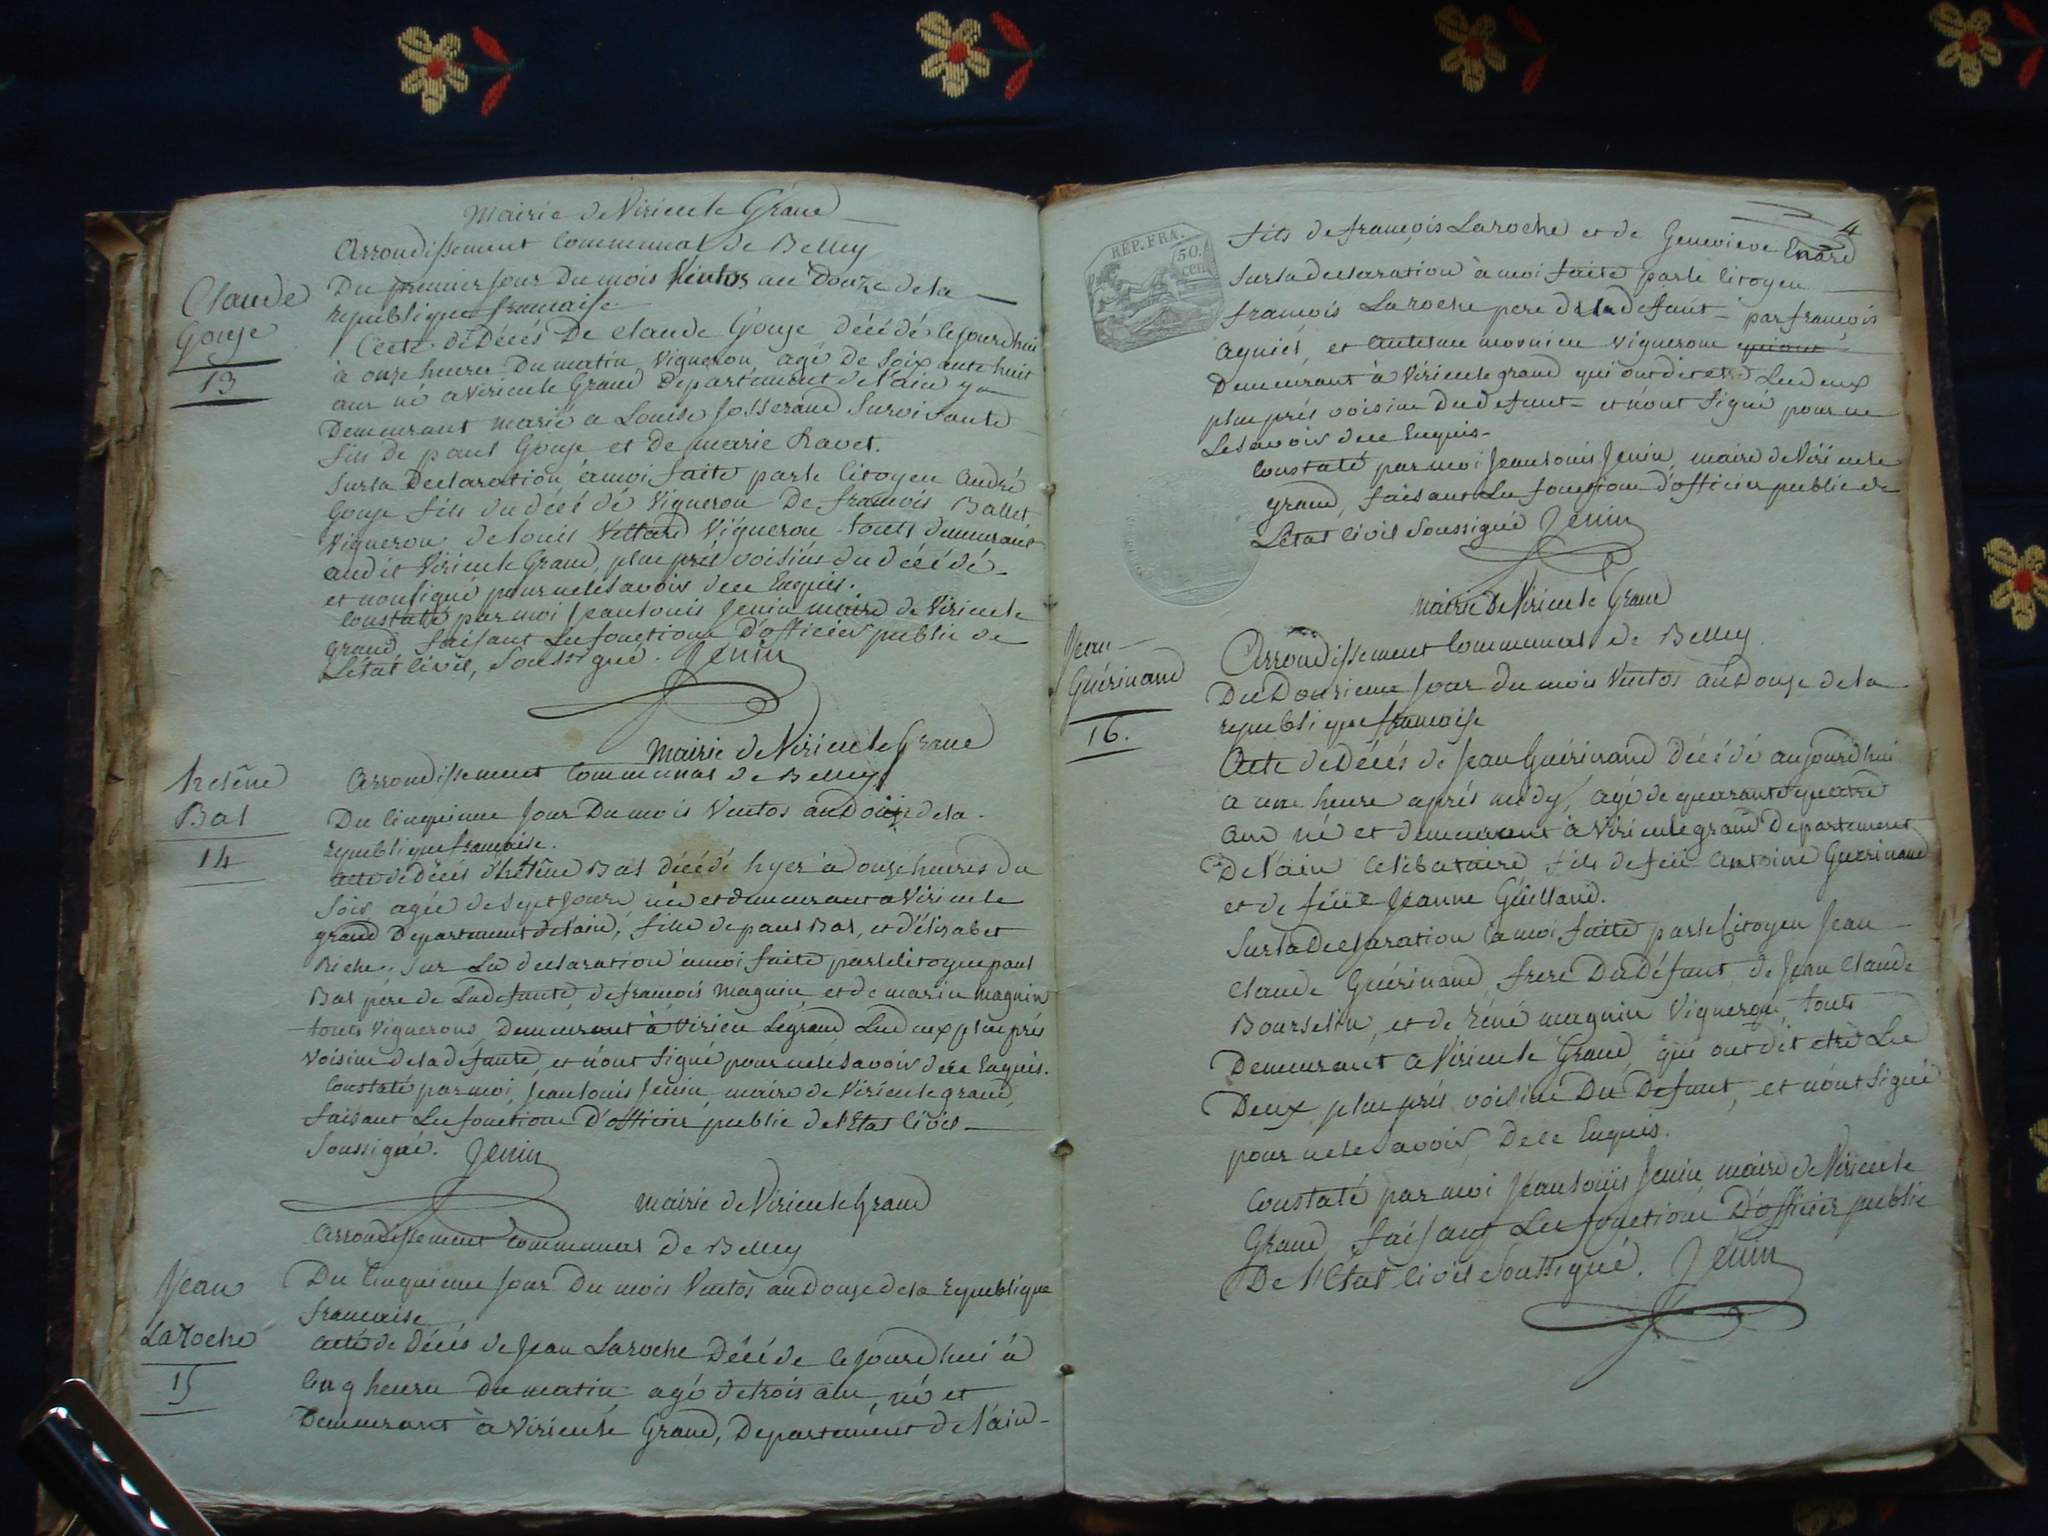 Mairie de Virieu le Grand
Arrondissement Communal de Belley
Claude
Gouje
13
Du premier Jour Du mois Ventos an Douze de la
republique francaise
Acte de Décés De Claude Gouje décédé cejourdhui
à onze heures Du matin Vigneron agé De Soixante huit
ans né a Virieu le Grand Departement de l'ain y
Demeurant marié a Louise Josserand Survivante
fils de paul Gouje et De marie Ravet.
Sur la Declaration a moi faite par le Citoyen André
Gouje fils du décédé Vigneron De francois Ballet
Vigneron de louis Vettard Vigneron touts demeurant
audit Virieu le Grand, plus prés voisins du décédé
et nont signé pour ne le savoir de ce Enquis.
Constaté par moi Jean louis Jenin maire de Virieu le
grand, faisant Les fonctions D'officier public de
L'état Civil, Soussigné. Jenin
Mairie de Virieu le Grand
helêne
Bal
14
Arrondissement Communal de Belley
Du Cinquieme Jour Du mois Ventos an Douze de la
republique francaise.
acte de Décés d'helêne Bal décédé hyer à onze heures du
Soir, agée de Sept Jours née et demeurant a Virieu le
grand Departement de l'ain, fille de paul Bal, et d'élisabet
Riche. Sur La declaration a moi faite par le Citoyen paul
Bal pére de La defunte, de francois magnin et de marin magnin
touts Vignerons, Demeurant à Virieu Legrand Les Deux plus prés
Voisins de la défunte, et n'ont Signé pour ne le Savoir de ce Enquis.
Constaté par moi, Jean louis Jenin maire de Virieu le grand,
faisant Les fonctions D'officier public de l'Etat Civil
Soussigné. Jenin
Mairie de Virieu le Grand
Arrondissement Communal De Belley
Jean
LaRoche
15
Du Cinquieme Jour Du mois Ventos an Douze de la Republique
francaise
acte de Décés de Jean Laroche Décédé cejourdhui à
Cinq heures Du matin, agé de trois ans, né et
Demeurant à Virieu le Grand, Departement de l'ain
4
RÉP. FRA.
50.
cen.
fils de françois Laroche et de Genevieve Emard
Sur la declaration à moi faite par le Citoyen
françois Laroche pere de la defunt par françois
Agniel, et Antelme monnier Vigneron
Demeurant à Virieu le grand qui ont dit et Les deux
plus prés voisins Du defunt et n'ont Signé pour ne
Le savoir de ce Enquis
Constaté par moi Jean louis Jenin, maire de Virieu le
grand, faisant Les fonctions d'officier public de
L'état Civil Soussigné Jenin
Mairie De Virieu le Grand
Jean
Guérinand
16.
Arrondissement Communal de Belley.
Du Douzieme Jour du mois Ventos an Douze de la
republique francaise
Acte de Décés de Jean Guérinand Décédé aujourd'hui
a une heure aprés midy, agé de quarante quatre
ans né et demeurant à Virieu le grand Departement
De l'ain Celibataire, fils de feü Antoine Guérinand
et de feüe Jeanne Guilland.
Sur la Declaration à moi faite par le Citoyen Jean
Claude Guérinand, frere Du Défunt, de Jean Claude
Bourselin, et de Réné magnin Vigneron, touts
Demeurant a Virieu le Grand qui ont dit etre Les
Deux plus prés voisins Du Defunt, et n'ont Signé
pour ne le Savoir De ce Enquis.
Constaté par moi Jean louis Jenin, maire de Virieu le
Grand faisant Les fonctions D'officier public
De l'Etat Civil Soussigné. Jenin